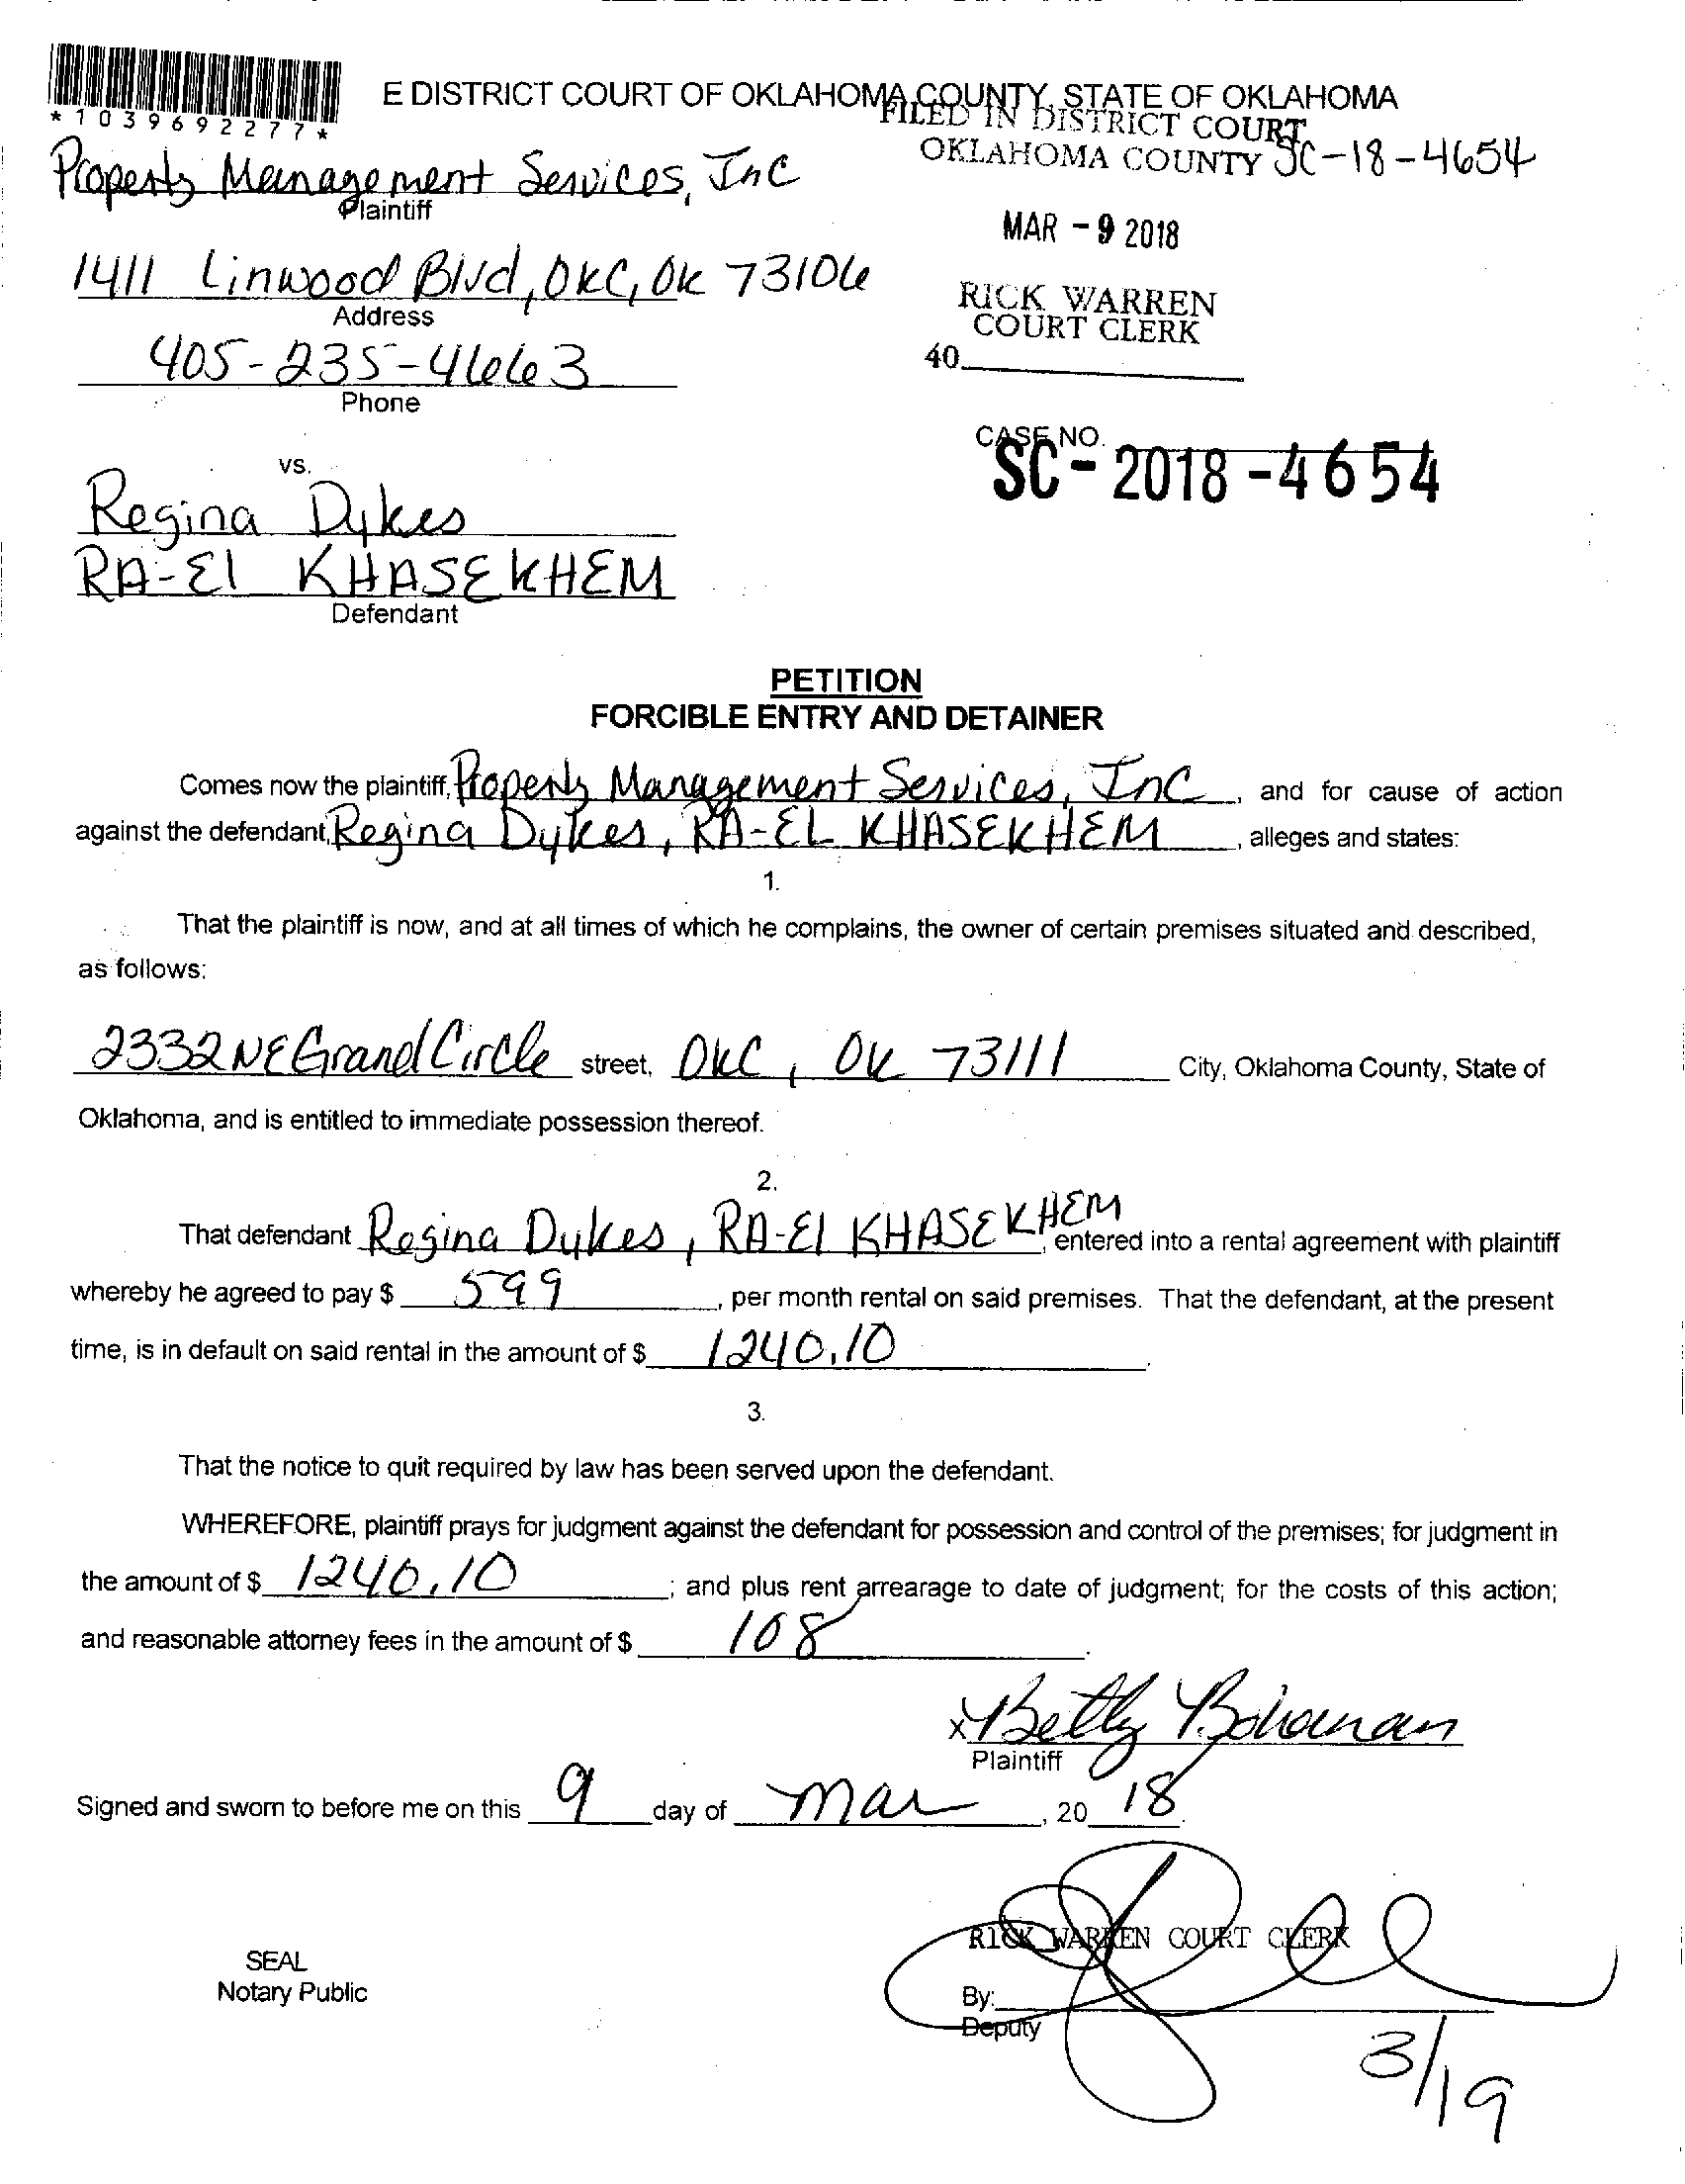 *1039692277*
E DISTRICT COURT OF OKLAHOMA COUNTY, STATE OF OKLAHOMA
FILED IN DISTRICT COURT
OKLAHOMA COUNTY SC-18-4654
Property Management Services, Inc
Plaintiff
MAR - 9 2018
1411 Linwood Blvd, OKC, OK 73106
Address
RICK WARREN
COURT CLERK
405-235-4663
Phone
40
CASE NO.
SC - 2018 - 4654
vs.
Regina Dykes
RA-El KHASEKHEM
Defendant
PETITION
FORCIBLE ENTRY AND DETAINER
Comes now the plaintiff, Property Management Services, Inc, and for cause of action
against the defendant, Regina Dykes, RA-EL KHASEKHEM, alleges and states:
1.
That the plaintiff is now, and at all times of which he complains, the owner of certain premises situated and described,
as follows:
2332 NE Grand Circle street, OKC, OK 73111 City, Oklahoma County, State of
Oklahoma, and is entitled to immediate possession thereof.
2.
That defendant Regina Dykes, RA-El KHASEKHEM, entered into a rental agreement with plaintiff
whereby he agreed to pay $ 599, per month rental on said premises. That the defendant, at the present
time, is in default on said rental in the amount of $ 1240.10.
3.
That the notice to quit required by law has been served upon the defendant.
WHEREFORE, plaintiff prays for judgment against the defendant for possession and control of the premises; for judgment in
the amount of $ 1240.10; and plus rent arrearage to date of judgment; for the costs of this action;
and reasonable attorney fees in the amount of $ 108.
x Betty Bohanan
Plaintiff
Signed and sworn to before me on this 9 day of Mar, 20 18.
RICK WARREN COURT CLERK
SEAL
Notary Public
By:
Deputy
3/19